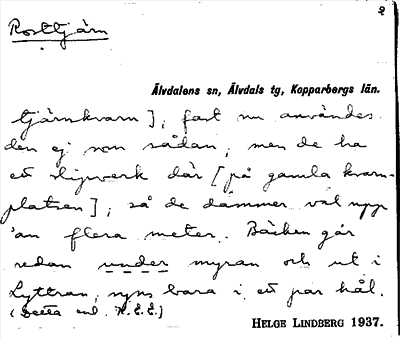 2
Rosttjärn
Älvdalens sn, Älvdals tg, Kopparbergs län.
tjärnkvarn], fast nu användes
den ej som sådan, men de ha
ett slipverk där [på gamla kvarn-
platsen], så de dämmer väl upp
'an flera meter. Bäcken går
redan under myran och ut i
Lyttran, syns bara i ett par hål.
(Detta enl. K.E.E.)
HELGE LINDBERG 1937.